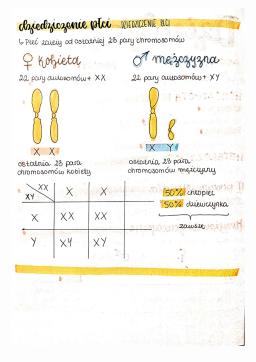 dziedziczenie płci DZIEDZICZENIE PŁCI
↳ Płeć zależy od ostatniej 23 pary chromosomów
♀ kobieta
♂ mężczyzna
22 pary autosomów + XX
22 pary autosomów + XY
X X
X Y
ostatnia 23 para
chromosomów kobiety
ostatnia 23 para
chromosomów mężczyzny
XX
XY
X X
X XX XX
Y XY XY
50% chłopiec
50% dziewczynka
zawsze